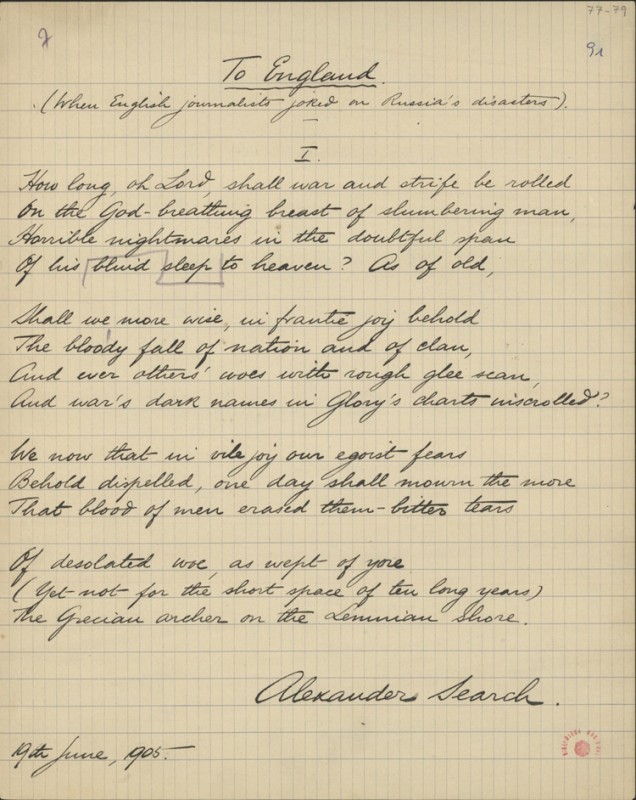 77-79
91
To England.
(When English journalists joked on Russia's disasters).
I.
How long, oh Lord, shall war and strife be rolled
On the God-breathing breast of slumbering man,
Horrible nightmares in the doubtful span
Of his blind sleep to heaven? As of old,
Shall we more wise, in frantic joy behold
The bloody fall of nation and of clan,
And ever others' woes with rough glee scan,
And war's dark names in Glory's charts inscrolled?
We now that in vile joy our egoist fears
Behold dispelled, one day shall mourn the more
That blood of men erased them - bitter tears
Of desolated woe, as wept of yore
(Yet not for the short space of ten long years)
The Grecian archer on the Lemnian shore.
Alexander Search.
19th June, 1905.